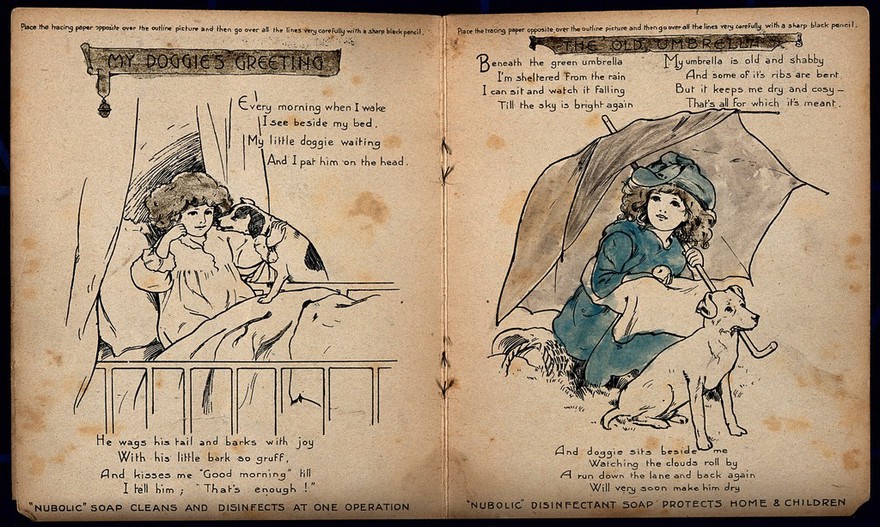 Place the tracing paper opposite over the outline picture and then go over all the lines very carefully with a sharp black pencil.
MY DOGGIE'S GREETING
Every morning when I wake
I see beside my bed,
My little doggie waiting
And I pat him on the head.
He wags his tail and barks with joy
With his little bark so gruff,
And kisses me "Good morning" till
I tell him; "That's enough!"
"NUBOLIC" SOAP CLEANS AND DISINFECTS AT ONE OPERATION
Place the tracing paper opposite over the outline picture and then go over all the lines very carefully with a sharp black pencil.
THE OLD UMBRELLA
Beneath the green umbrella
I'm sheltered from the rain
I can sit and watch it falling
Till the sky is bright again
My umbrella is old and shabby
And some of it's ribs are bent.
But it keeps me dry and cosy—
That's all for which it's meant.
And doggie sits beside me
Watching the clouds roll by
A run down the lane and back again
Will very soon make him dry
"NUBOLIC" DISINFECTANT SOAP PROTECTS HOME & CHILDREN